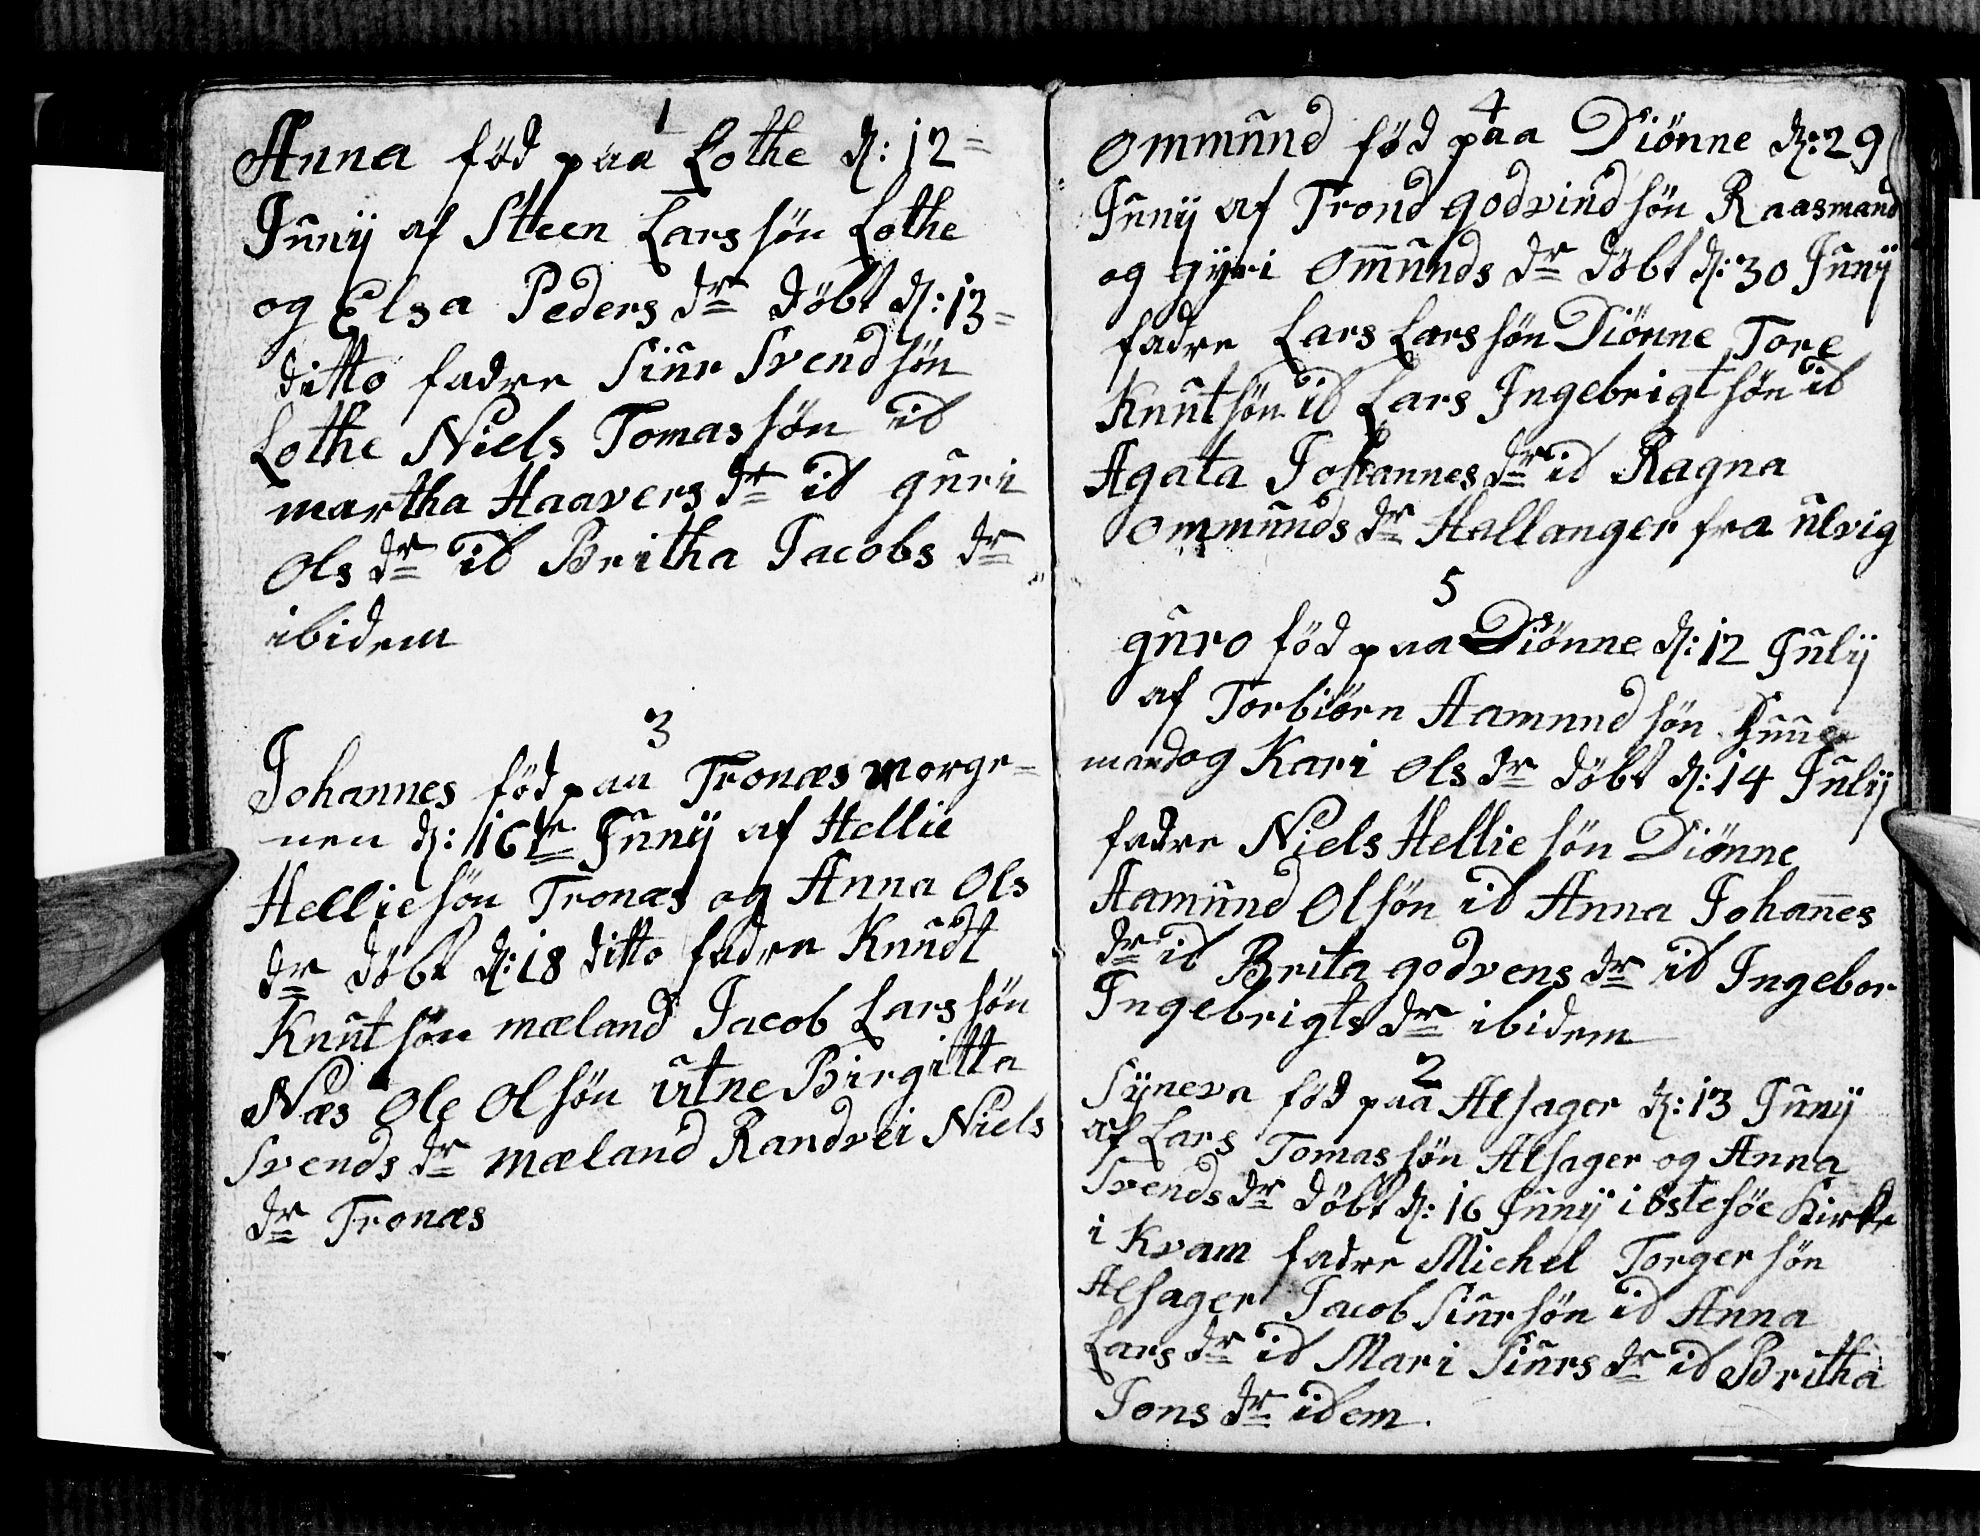 1
Anna föd paa Lothe d: 12=
Junij af Steen Lars sön Lothe
og Elsa Peders dr döbt d: 13=
ditto fadre Siur Svend sön
Lothe Niels Tomas sön id
martha Haavers dr id guri
Ols dr id Britha Jacobs dr
ibidem
3
Johannes föd paa Tronæs morge=
nen d: 16te Junij af Hellie
Hellie sön Tronæs og Anna Ols
dr döbt d: 18 ditto fadre Knudt
Knut sön mæland Jacob Lars sön
Næs Ole Ol sön utne Birgitta
Svends dr mæland Randvei Niels
dr Tronæs
4
Ommund föd paa Diönne d: 29
Junij af Trond godvind sön Raasmand
og gyri Om̅unds dr döbt d: 30 Junij
fadre Lars Lars sön Diönne Tore
Knut sön id Lars Ingebrigt sön id
Agata Johannes dr id Ragna
Ommunds dr Hallanger fra ulvig
5
guro föd paa Diönne d: 12 Julij
af Torbiörn Aamund sön
mand og Kari Ols dr döbt d: 14 Julij
fadre Niels Hellie sön Diönne
Aamund Ol sön id Anna Johan̅es
dr id Brita godvens dr id Ingebor
Ingebrigts dr ibidem
2
Syneva föd paa Alsager d: 13 Junij
af Lars Tomas sön Alsager og Anna
Svends dr döbt d: 16 Junij i östesöe Kirke
i Kvam fadre Michel Torger sön
Alsager Jacob Siur sön id Anna
Lars dr id Mari Siurs dr id Britha
Jons dr idem.